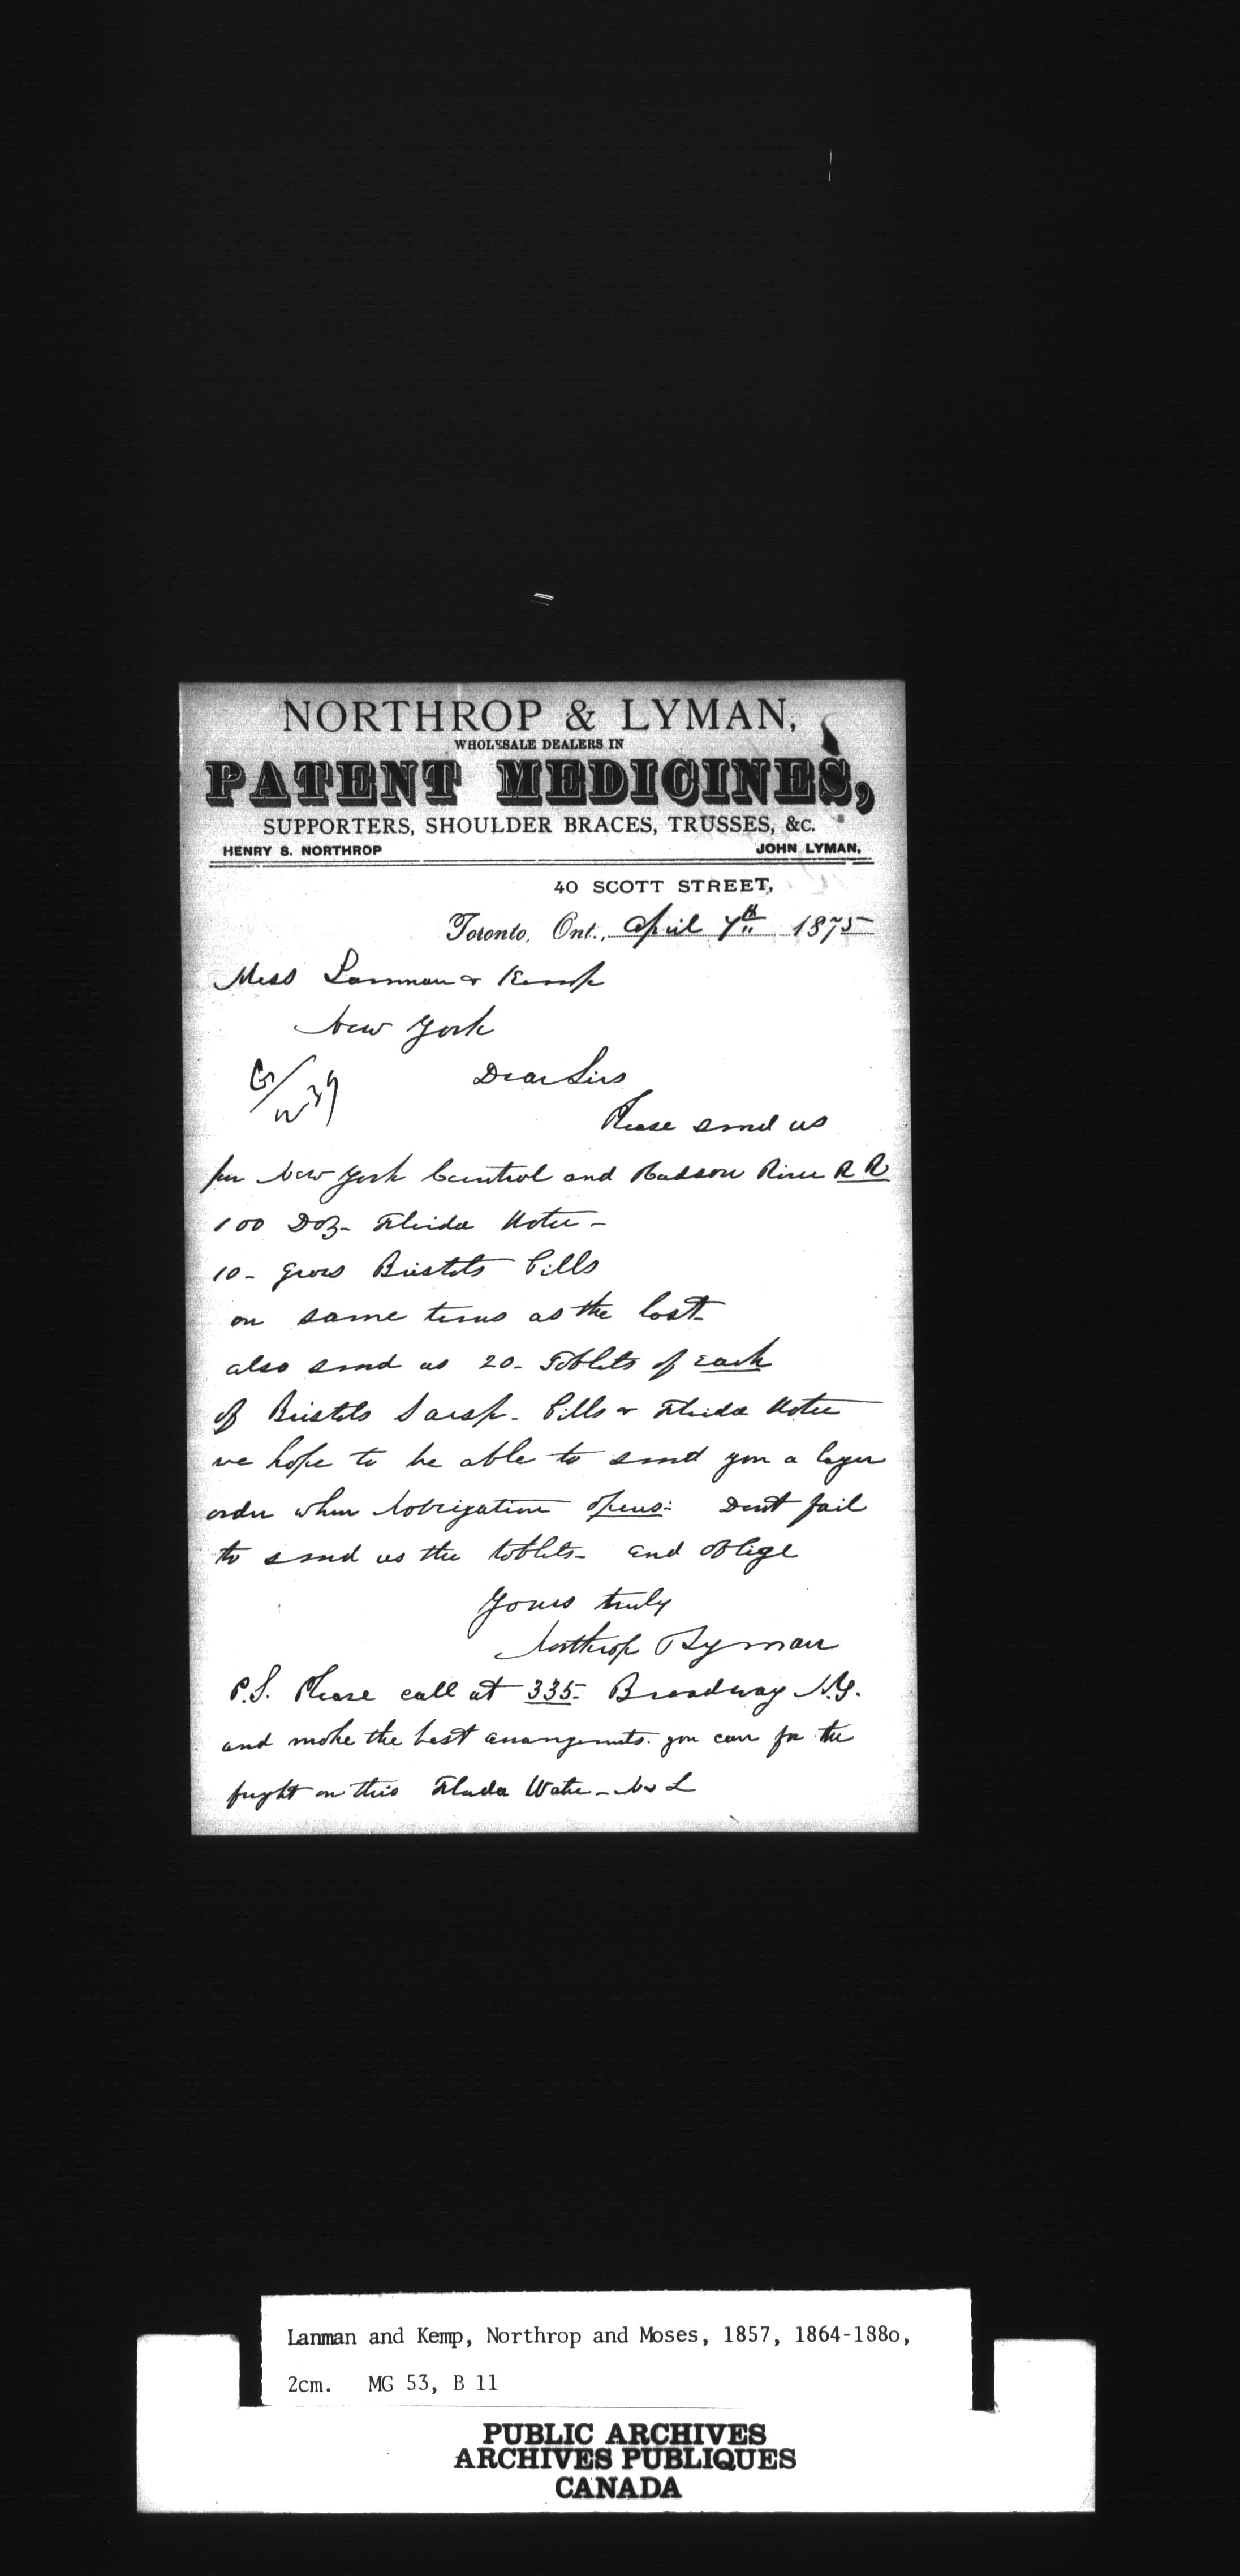 NORTHROP & LYMAN,
WHOLESALE DEALERS IN
PATENT MEDICINES,
SUPPORTERS, SHOULDER BRACES, TRUSSES, &c.
HENRY S. NORTHROP JOHN LYMAN,
40 SCOTT STREET,
Toronto, Ont., April 7th 1875
Mess Lanman & Kemp
New York
Dear Sirs
Please send us
per New York Central and Hudson River R R
100 Doz- Florida Water -
10- gross Bristols Pills
on same terms as the last-
also send us 20- Tablets of each
of Bristols Sarsp- Pills & Florida Water
we hope to be able to send you a larger
order when Navigation opens: Dont fail
to send us the tablets- and oblige
Yours truly
Northrop Lyman
P.S. Please call at 335- Broadway N.Y.
and make the best arrangements you can for the
freight on this Florida Water - N & L
Lanman and Kemp, Northrop and Moses, 1857, 1864-188o,
2cm. MG 53, B 11
PUBLIC ARCHIVES
ARCHIVES PUBLIQUES
CANADA